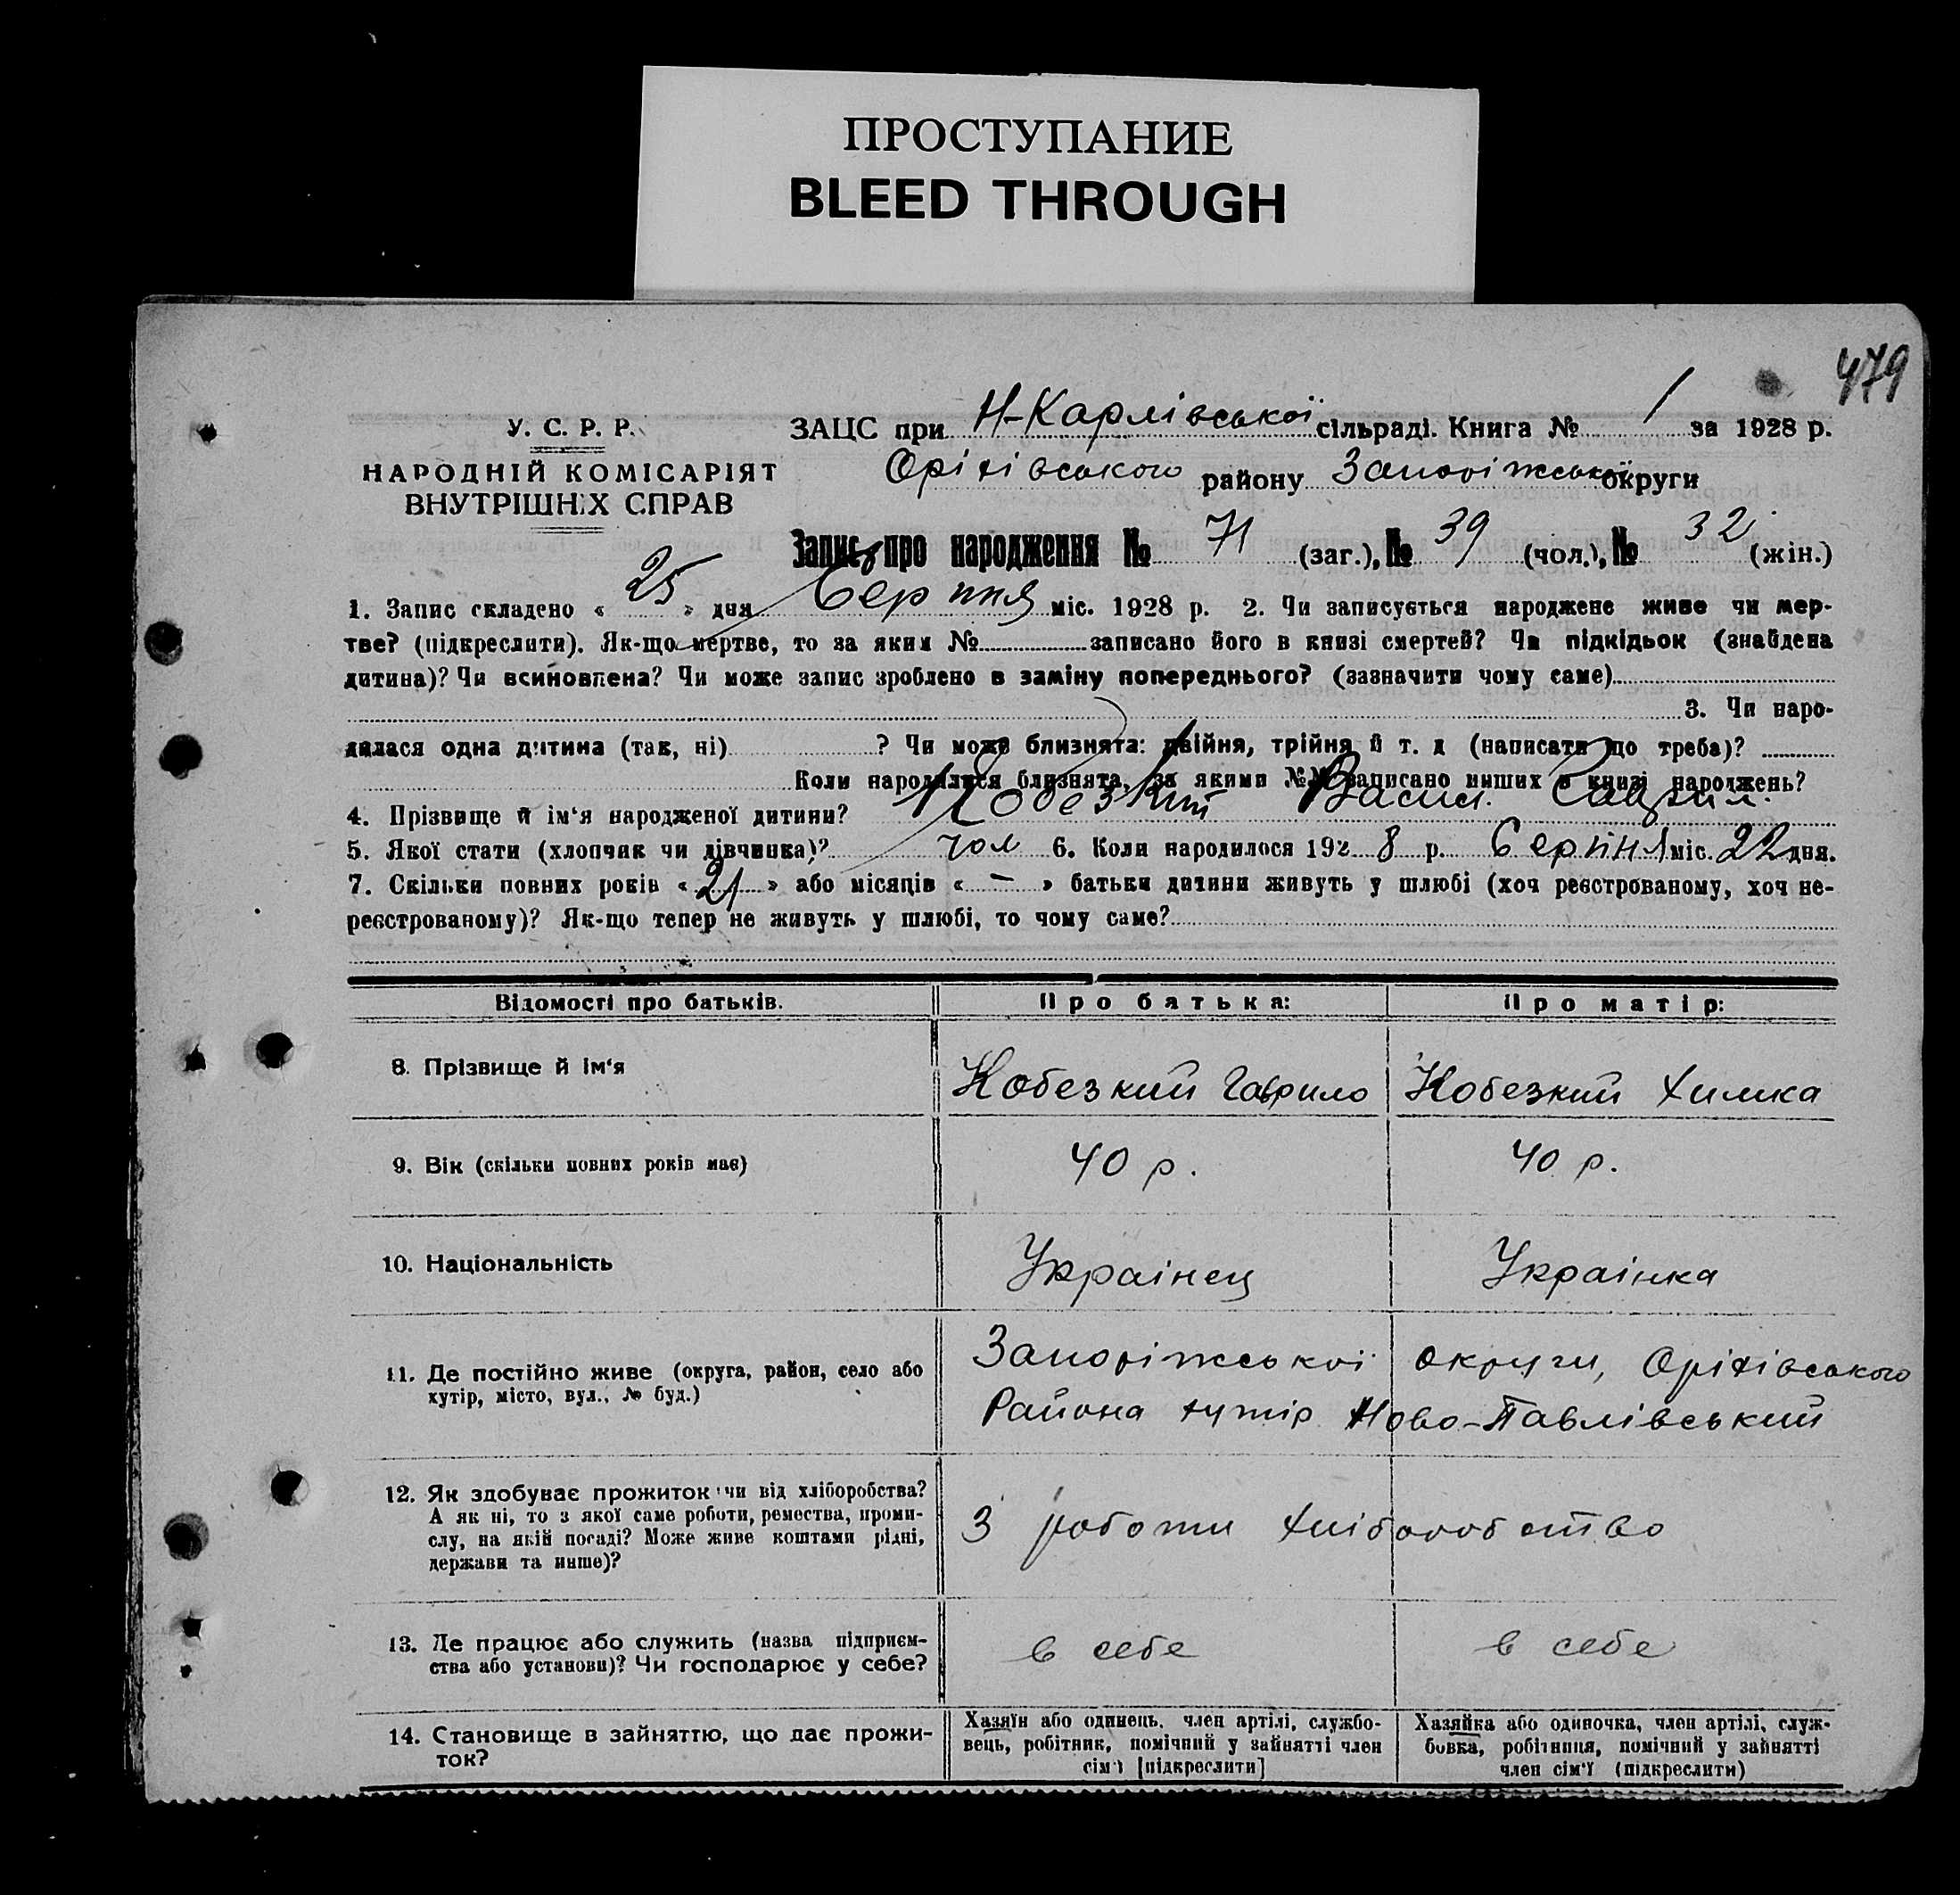 ПРОСТУПАНИЕ
BLEED THROUGH
479
У. С. Р. Р.
НАРОДНІЙ КОМІСАРІЯТ
ВНУТРІШНІХ СПРАВ
ЗАЦС при Н-Карлівської сільраді. Книга № 1 за 1928 р.
Оріхівського району Запоріжської округи
Запис про народження № 71 (заг.), № 39 (чол.), № 32 (жін.)
1. Запис складено « 25 » дня Серпня міс. 1928 р. 2. Чи записується народжене живе чи мер-
тве? (підкреслити). Як-що мертве, то за яким № записано його в книзі смертей? Чи підкідьок (знайдена
дитина)? Чи всиновлена? Чи може запис зроблено в заміну попереднього? (зазначити чому саме)
3. Чи наро-
дилася одна дитина (так, ні) ? Чи може близнята: двійня, трійня й т. д (написати що треба)?
Коли народилися близнята, за якими №№ записано инших в книзі народжень?
4. Прізвище й ім'я народженої дитини? Кобезкий Васил. Гаврил.
5. Якої стати (хлопчик чи дівчинка)? чол 6. Коли народилося 192 8 р. Серпня міс. 22 дня.
7. Скільки повних років « 21 » або місяців « — » батьки дитини живуть у шлюбі (хоч реєстрованому, хоч не-
реєстрованому)? Як-що тепер не живуть у шлюбі, то чому саме?
Відомості про батьків. Про батька: Про матір:
8. Прізвище й ім'я Кобезкий Гаврило Кобезкий Химка
9. Вік (скільки повних років має) 40 р. 40 р.
10. Національність Украінец Украінка
11. Де постійно живе (округа, район, село або
хутір, місто, вул., № буд.)
Запоріжської округи, Оріхівського
Района хутір Ново-Павлівський
12. Як здобуває прожиток чи від хліборобства?
А як ні, то з якої саме роботи, ремества, проми-
слу, на якій посаді? Може живе коштами рідні,
держави та инше)?
З роботи хліборобство
13. Де працює або служить (назва підприєм-
ства або установи)? Чи господарює у себе?
в себе в себе
14. Становище в зайняттю, що дає прожи-
ток?
Хазяїн або одинець, член артілі, службо-
вець, робітник, помічний у зайнятті член
сім'ї [підкреслити]
Хазяйка або одиночка, член артілі, служ-
бовка, робітниця, помічний у зайнятті
член сім'ї (підкреслити)